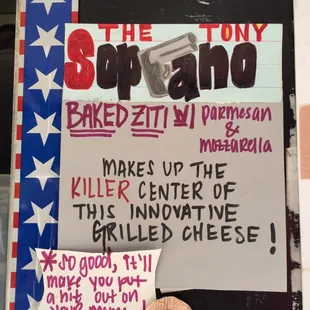 THE TONY
Soprano
BAKED ZITI W/ parmesan
&
mozzarella
MAKES UP THE
KILLER CENTER OF
THIS INNOVATIVE
GRILLED CHEESE!
*So good, it'll
make you put
a hit out on
your